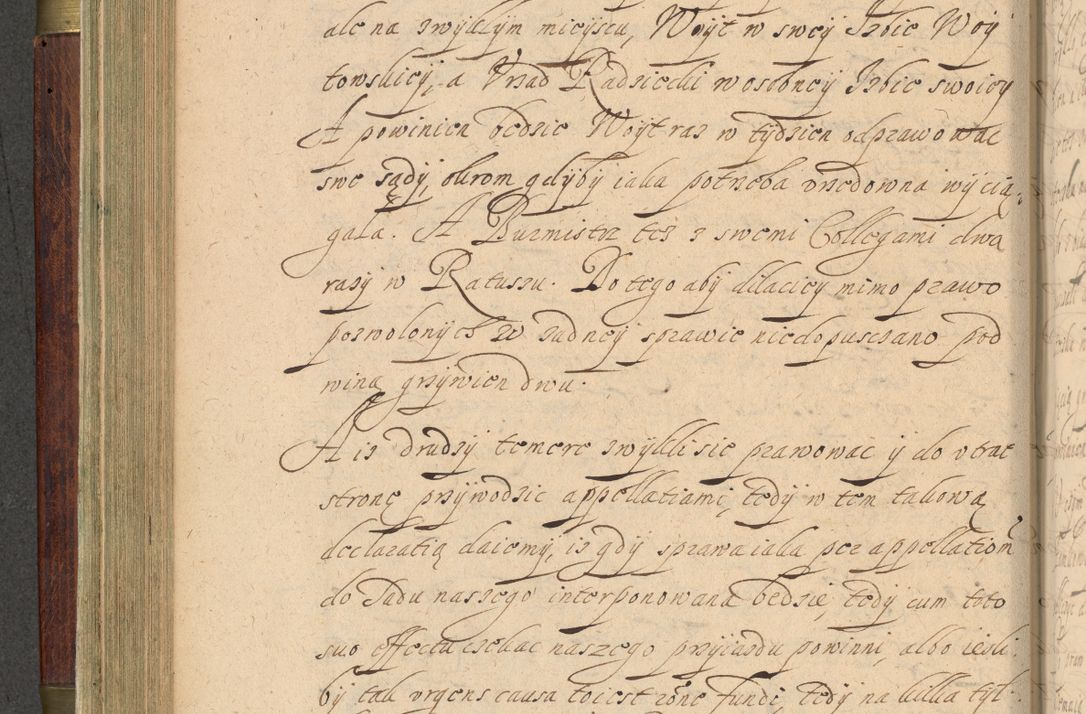 ale na zwykłym mieyscu, Woyt w swey Izbie Woy
towskiey, a Vrząd Radziecki w osobney Izbie swoiey
A powinien będzie Woyt raz w tydzien odprawować
swe sądy, okrom gdyby iaka potrzeba vrzedowna wycią,
gała. A Burmistrz tez z swemi Collegami dwa
razy w Ratuszu. Do tego aby dilaciey mimo prawo
pozwolonych w zadney sprawie niedopusczano pod
winą grzywien dwu.
A iz drudzy temere zwykli się prawować y do vtrat
stronę przywodzic appellatiami, tedy w tem takową
declaratią daiemy, iz gdy sprawa iaka per appellation
do Sadu naszego interponowana będzie, tedy cum toto
suo effectu czekac naszego przyiazdu powinni, albo iesli
by tak vrgens causa to iest zone fundi, tedy na kilka tyl